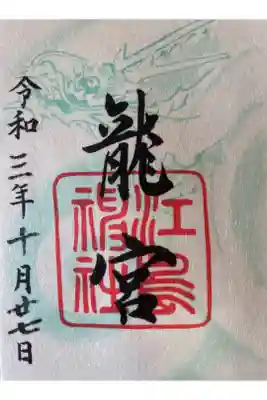 江島
神社
龍宮
令和三年十月廿七日